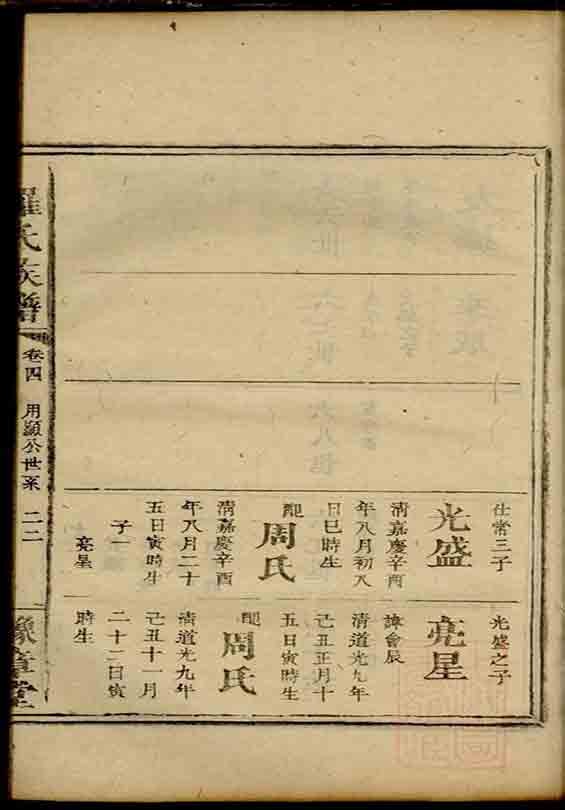 仕常三子
光盛
清嘉慶辛酉
年八月初八
日巳時生
配
周氏
清嘉慶辛酉
年八月二十
五日寅時生
子一
亮星
光盛之子
亮星
諱會辰
清道光九年
己丑正月十
五日寅時生
配
周氏
清道光九年
己丑十一月
二十二日寅
時生
羅氏族譜
卷四
用顯公世系
二二
豫章堂